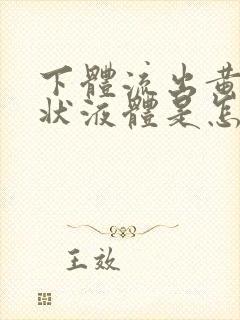 下體流出黄
狀液體是怎
王效